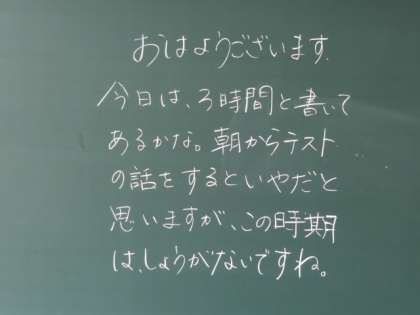 おはようございます.
今日は、3時間と書いて
あるかな。朝からテスト
の話をするといやだと
思いますが、この時期
は、しょうがないですね。